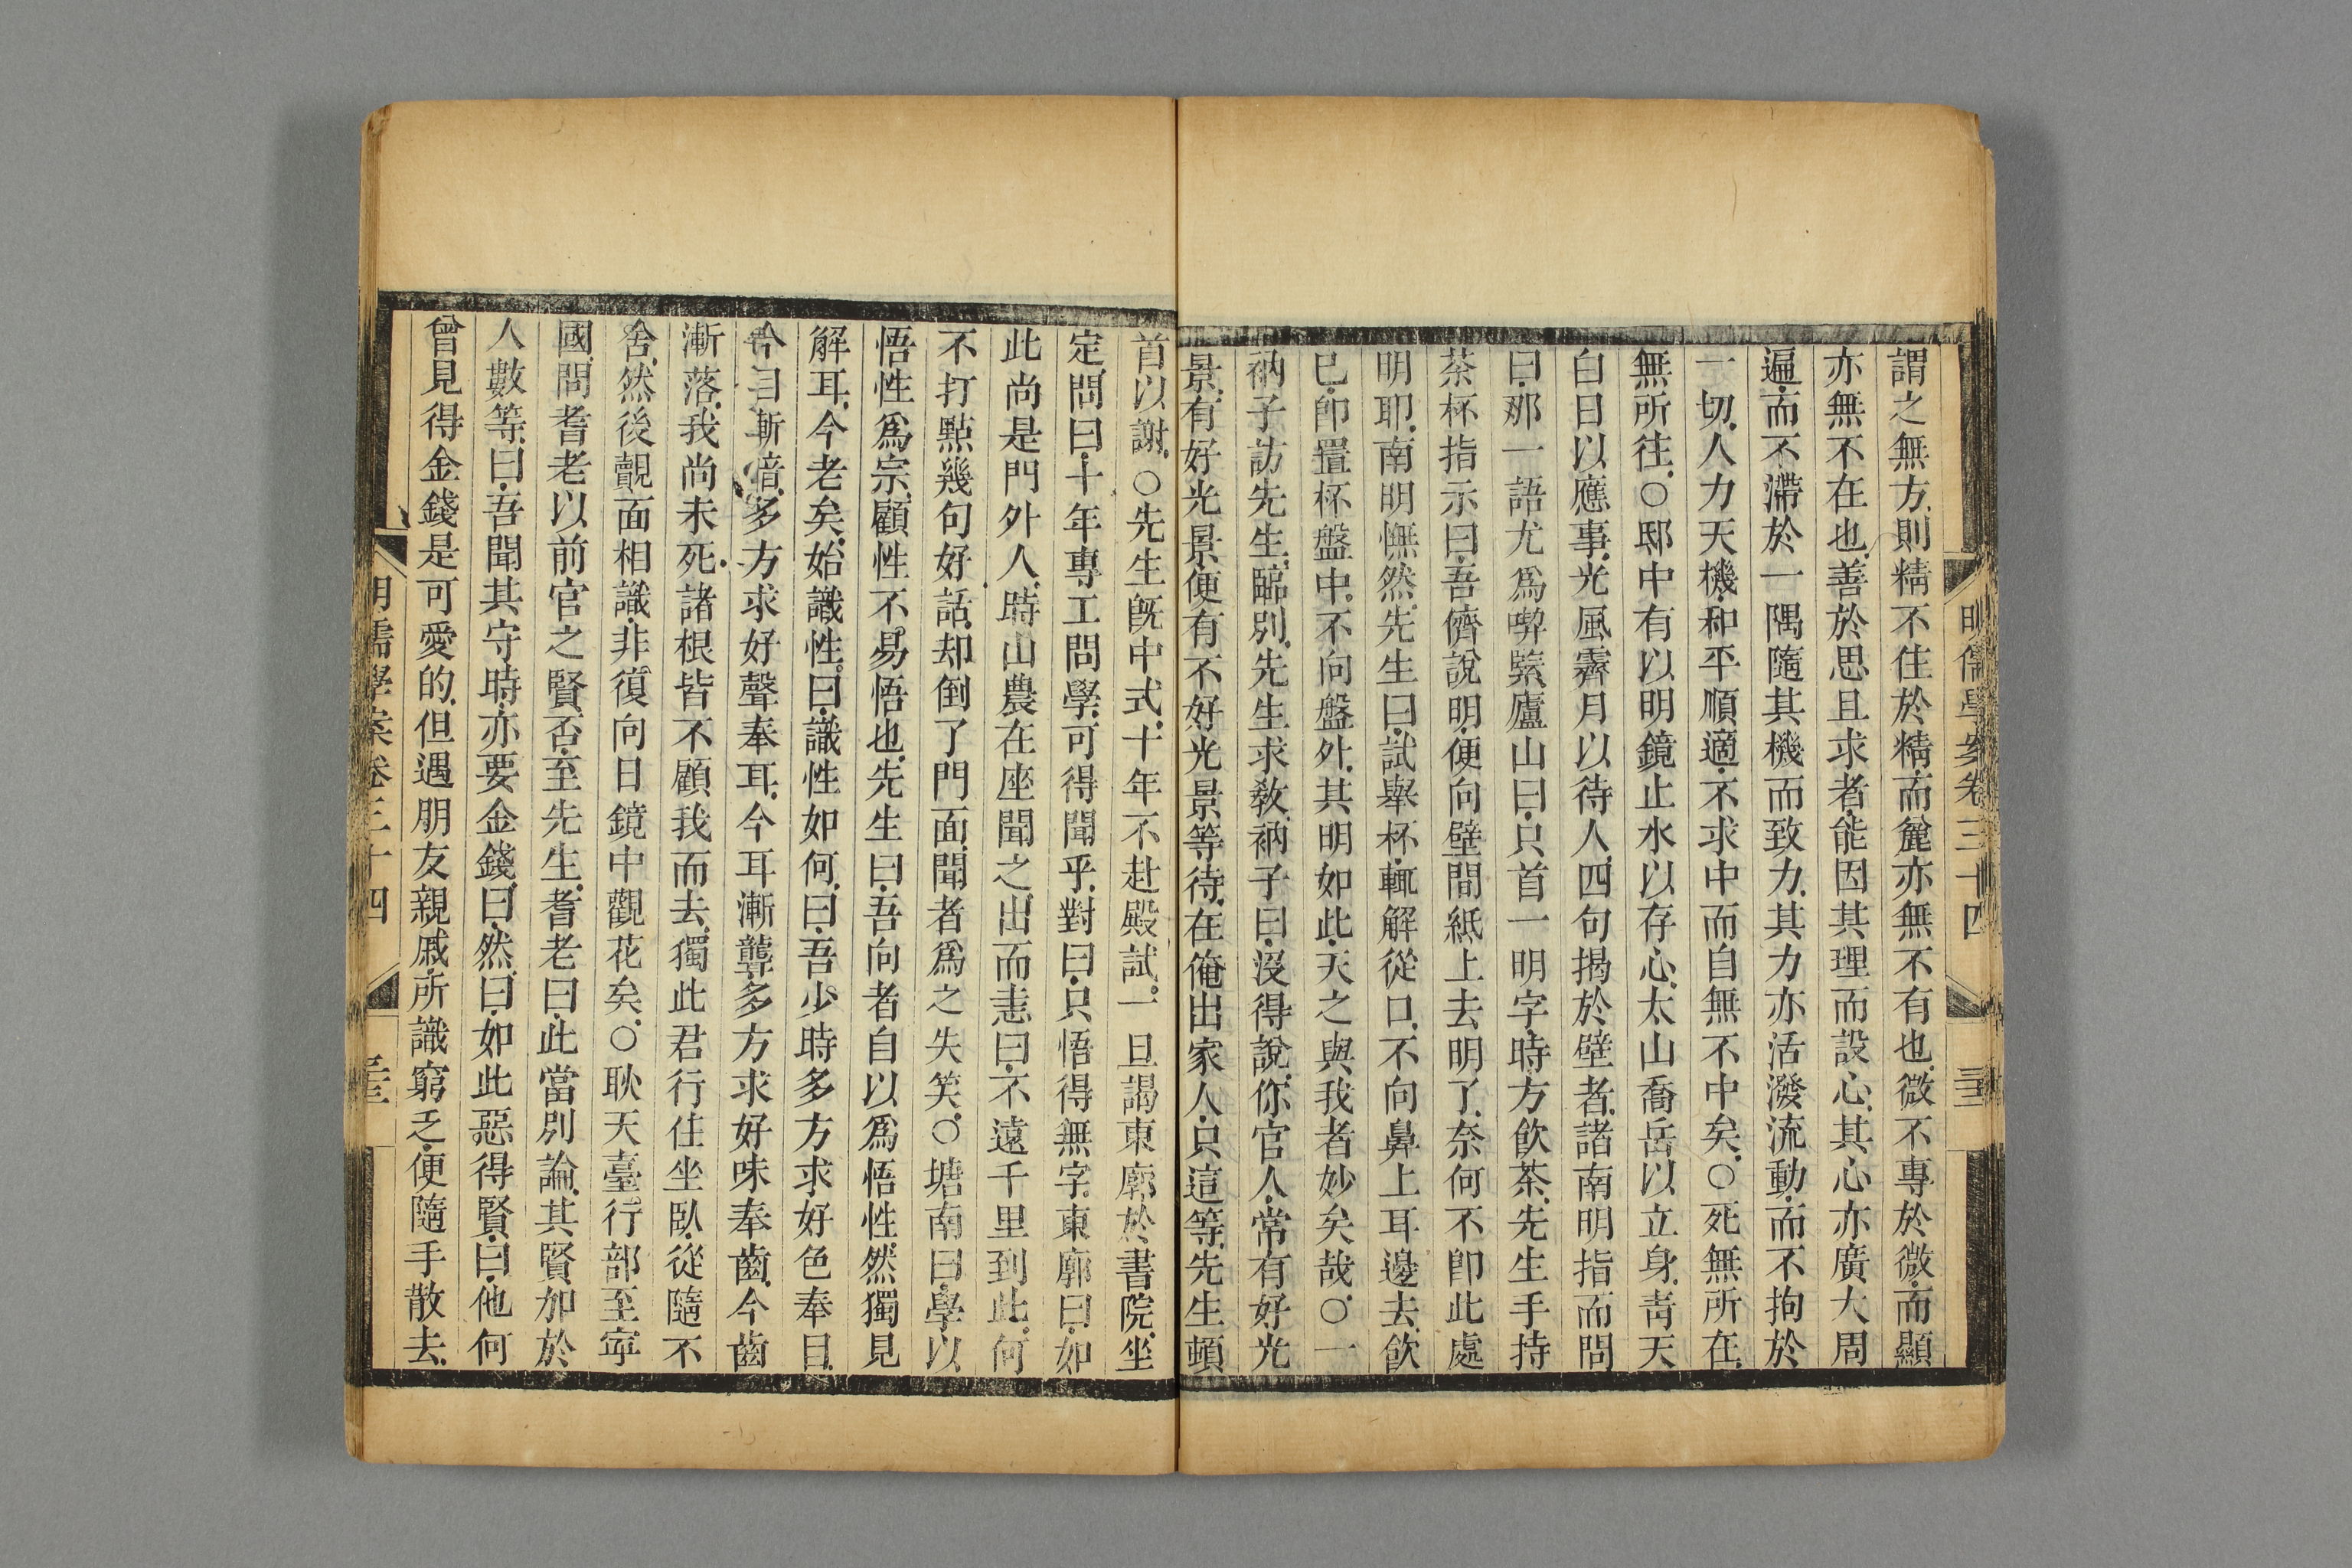 明儒學案卷三十四
謂之無方、則精不住於精、而麄亦無不有也、微不專於微、而顯
亦無不在也、善於思且求者、能因其理而設心、其心亦廣大周
遍、而不滯於一隅、隨其機而致力、其力亦活潑流動、而不拘於
一切、人力天機、和平順適、不求中而自無不中矣、○死無所在、
無所往、○邸中有以明鏡止水以存心、太山喬岳以立身、青天
白日以應事、光風霽月以待人、四句揭於壁者、諸南明指而問
曰、那一語尤爲喫緊、廬山曰、只首一明字、時方飲茶、先生手持
茶杯指示曰、吾儕說明、便向壁間紙上去明了、奈何不卽此處
明耶、南明憮然、先生曰、試舉杯、輒解從口、不向鼻上耳邊去、飲
已、卽置杯盤中、不向盤外、其明如此、天之與我者妙矣哉、○一
衲子訪先生、臨別、先生求教、衲子曰、沒得說、你官人、常有好光
景、有好光景、便有不好光景等待、在俺出家人、只這等、先生頓
首以謝、○先生旣中式、十年不赴殿試、一旦謁東廓於書院、坐
定、問曰、十年專工問學、可得聞乎、對曰、只悟得無字、東廓曰、如
此尚是門外人、時山農在座聞之、出而恚曰、不遠千里到此、何
不打點幾句好話、却倒了門面、聞者爲之失笑、○塘南曰、學以
悟性爲宗、顧性不易悟也、先生曰、吾向者自以爲悟性、然獨見
解耳、今老矣、始識性、曰、識性如何、曰、吾少時多方求好色奉目、
今目漸暗、多方求好聲奉耳、今耳漸聾、多方求好味奉齒、今齒
漸落、我尚未死、諸根皆不顧我而去、獨此君行住坐臥、從隨不
舍、然後覿面相識、非復向日鏡中觀花矣、○耿天臺行部至寧
國、問耆老以前官之賢否、至先生、耆老曰、此當別論、其賢加於
人數等、曰、吾聞其守時、亦要金錢、曰、然、曰、如此惡得賢、曰、他何
曾見得金錢是可愛的、但遇朋友親戚、所識窮乏、便隨手散去、
明儒學案卷三十四